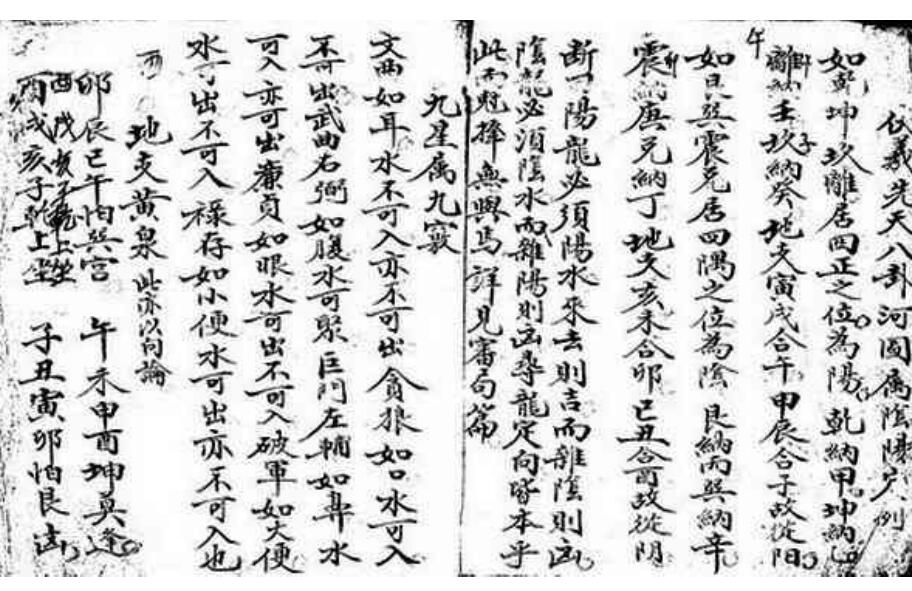 伏羲先天八卦河圖属陰陽穴例
如乾坤坎離居四正之位為陽乾納甲坤納乙
離納壬坎納癸地支寅戌合午申辰合子故從陽
午
如艮巽震兌居四隅之位為陰艮納丙巽納辛
震納庚兌納丁地支亥未合卯巳丑合酉故從陰
断曰陽龍必須陽水來去則吉而雜陰則凶
陰龍必須陰水而雜陽則凶尋龍定向皆本乎
此而冠擇無與焉詳見審局篇
九星属九竅
文曲如耳水不可入亦不可出貪狼如口水可入
不可出武曲右弼如腹水可聚巨門左輔如鼻水
可入亦可出廉貞如眼水可出不可入破軍如大便
水可出不可入祿存如小便水可出亦不可入也
地支黃泉此亦以向論
卯辰巳午怕巽宮 午未申酉坤莫逢
酉戌亥子乾上坐 子丑寅卯怕艮凶